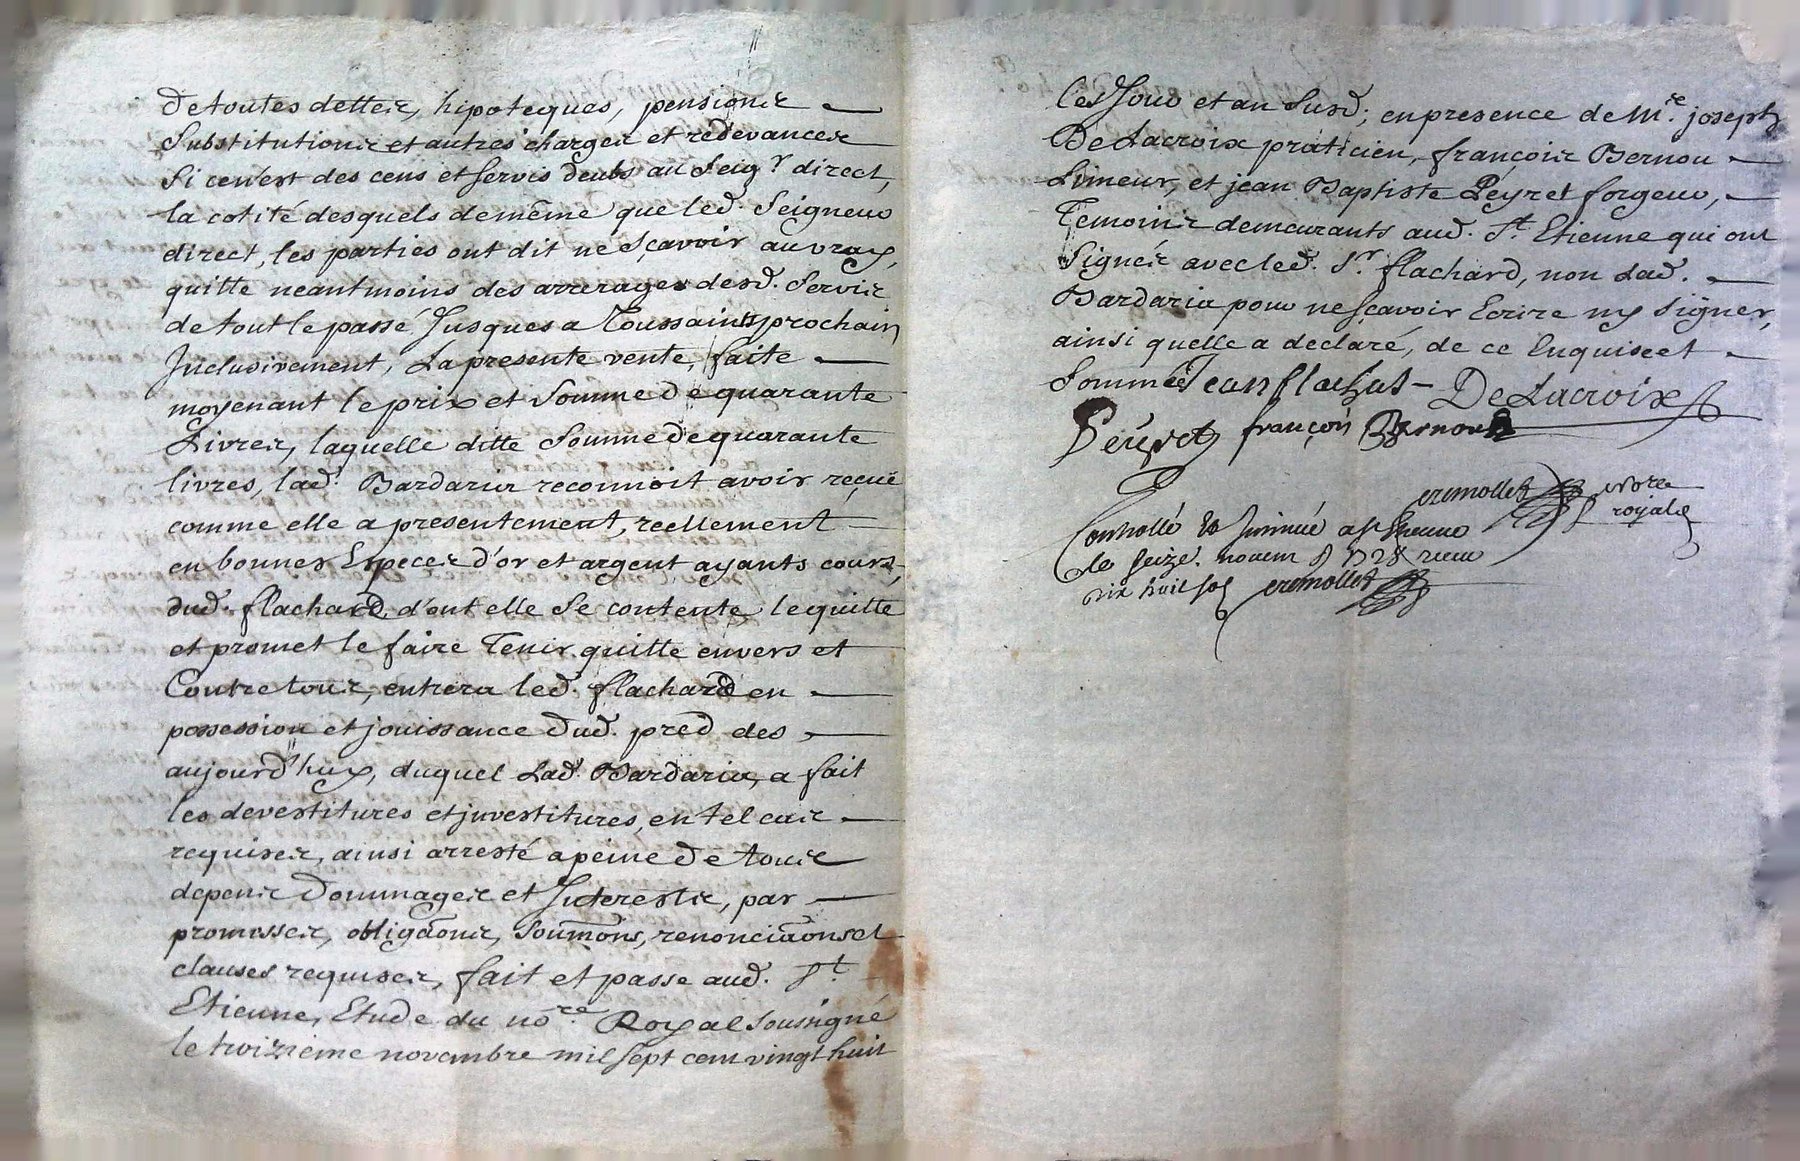 de toutes dettes, hipoteques, pensions
Substitutions et autres charges et redevances
Si ce n'est des cens et servis deubs au Seigr direct,
la cotité desquels de même que led. Seigneur
direct, les parties ont dit ne sçavoir au vray,
quitte neantmoins des arrerages desd. Servis
de tout le passé Jusques a Toussaints prochain
Inclusivement, La presente vente, faite
moyenant le prix et Somme de quarante
Livres, laquelle ditte Somme de quarante
livres, lad. Bardaria reconnoit avoir reçuë
comme elle a presentement, reellement
en bonnes Especes d'or et argent ayants cours,
dud. flachard, d'ont elle se contente, le quitte
et promet le faire Tenir quitte envers et
Contre tous, entrera led. flachard en
possession et jouissance dud. pred des
aujourd'huy, duquel Lad. Bardaria, a fait
les devestitures et investitures, en tel cas
requises, ainsi arresté a peine de tous
depens Dommages et Interests, par
promesses, obligaons, Soumõns, renonciaons et
clauses requises, fait et passe aud. St
Etienne, Etude du nore Royal Soussigné
le troizieme novembre mil sept cent vingt huit
Les Jour et an Susd; en presence de Mre joseph
De Lacroix praticien, françois Bernou
Limeur, et jean Baptiste Peyret forgeur,
Temoins demeurants aud. St. Etienne qui ont
Signés avec led. Sr. flachard, non Lad.
Bardaria pour ne sçavoir Ecrire ny signer,
ainsi quelle a declaré, de ce Enquise et
Sommée Jean flachat De Lacroix
Peyret françois Bernou
cremollet nore
royal
Controllé & Insinué a St Etienne
le seize novem 1728 receu
dix huit sol cremollet